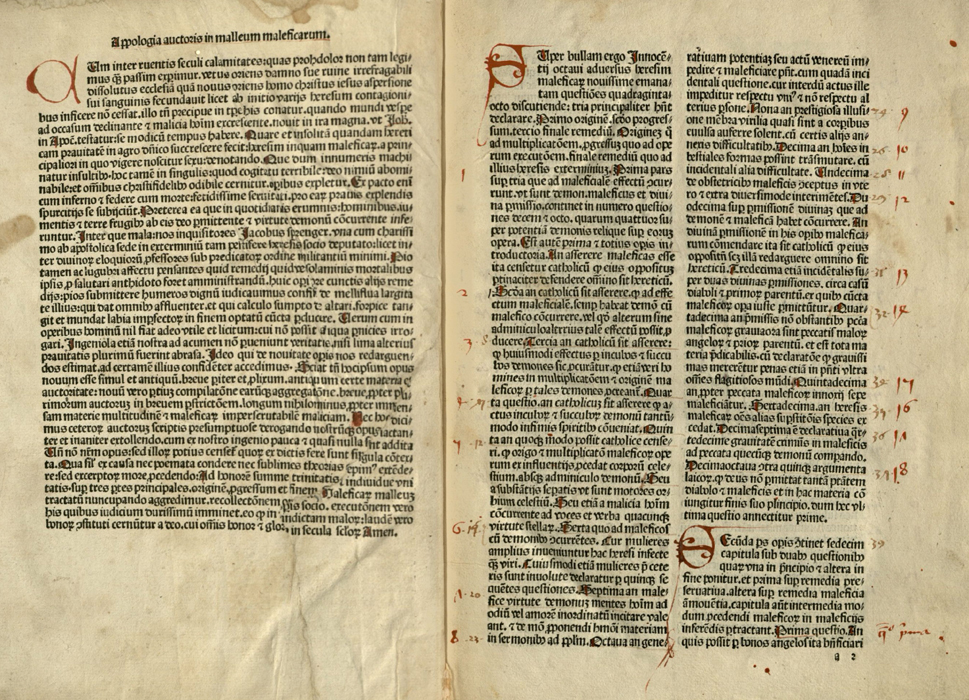 Appologia auctoris in malleum maleficarum.
Um inter ruentis seculi calamitates: quas prohdolor non tam legi-
mus qȝ passim experimur. vetus oriens damno sue ruine irrefragabili
dissolutus ecclesiā quā nouus oriens homo christus iesus aspersione
sui sanguinis fecundauit licet ab initio varijs heresum contagioni-
bus inficere nō cessat. illo tn̄ precipue in his conatur. quando mundi vespe
ad occasum declinante ⁊ malicia hoīm excrescente. nouit in ira magna. vt Joh.
in Apoc. testatur: se modicū tempus habere. Quare et insolitā quandam hereti
cam prauitatē in agro dn̄ico succrescere fecit: heresim inquam maleficaꝝ. a prin-
cipaliori in quo vigere noscitur sexu: denotando. Que dum innumeris machi
natur insultibꝰ: hoc tamē in singulis: quod cogitatu terribile: deo nimiū abomi-
nabile: et oīnibus christifidelibꝰ odibile cernitur. opibus expletur. Ex pacto enī
cum inferno ⁊ federe cum morte: fetidissime seruituti. pro eaꝝ prauis explendis
spurcitijs se subijciūt. Preterea ea que in quotidianis erumnis: hominibus. iu-
mentis ⁊ terre frugibꝰ ab eis deo pmittente ⁊ virtute demonū cōcurrente infe-
runtur. Inter que mala: nos inquisitores Jacobus sprenger. vna cum charissi
mo ab apostolica sede in exterminiū tam pestifere heresis socio deputato: licet in-
ter diuinoꝝ eloquioꝝ pfessores sub predicatoꝝ ordine militantiū minimi. Pio
tamen ac lugubri affectu pensantes quid remedij quidve solaminis mortalibus
ipsis. p salutari antidoto foret amministrandū. huic opi pre cunctis alijs reme
dijs: pios submittere humeros dignū iudicauimus
te illius: qui dat omnibꝰ affluenter. et qui calculo sumpto de altari. forpice tan-
git et mundat labia imperfectoꝝ in finem optatū cūcta pducere. Verum cum in
operibus hominū nil fiat adeo vtile et licitum: cui nō possit aliqua pnicies irro-
gari. Ingeniola etiā nostra ad acumen nō pueniunt veritatis. nisi lima alterius
prauitatis plurimū fuerint abrasa. Ideo qui de nouitate opis nos redarguen-
dos estimat. ad certamē illius confidēter accedimus. Sciat tn̄ hocipsum opus
nouum esse simul et antiquū. breue piter et plixum. antiquum certe materia et
auctoritate: nouū vero ptium compilatōne earūqȝ aggregatōne. breue. ppter plu-
rimorum auctoꝝ in breuem pstrictōem. longum nihilominus. ppter immen-
sam materie multitudinē ⁊ maleficaꝝ imperscrutabilē maliciam. Nec hoc dici-
mus ceteroꝝ auctoꝝ scriptis presumptuose derogando nostrūqȝ opus iactan-
ter et inaniter extollendo. cum ex nostro ingenio pauca ⁊ quasi nulla sint addita
Un̄ nō nēm opus: sed illoꝝ potius censef̄ quoꝝ ex dictis fere sunt singula cōtex-
ta. Qua fit ex causa nec poemata condere nec sublimes theorias cepim̄ extēde-
re: sed excerptoꝝ more. pcedendo: Ad honorem summe trinitatis ⁊ indiuidue vni
tatis. sup tres ptes principales. originē. pgressum et finem. Maleficaꝝ malleuȝ
tractatū nuncupando aggredimur. recollectōnem opis socio. executōnem vero
his quibus iudicium durissimū imminet. eo qꝙ in vindictam maloꝝ: laudē vero
bonoꝝ ɔstituti cernūtur a deo. cui oīnis honor ⁊ glor. in secula seloꝝ Amen.
Uper bullam ergo Innocē-
tij octaui aduersus heresim
maleficaꝝ nouissime emana-
tam questiōes quadraginta-
octo discutiende: tria principaliter hn̄t
declarare. Primo originē. scdo progres-
sum. tercio finale remediū. Originez qꝙ
ad multiplicatōnem. pgressuȝ quo ad ope
rum executōem. finale remediū quo ad
illius heresis exterminiuȝ. Prima pars
sup tria que ad maleficalē effectū ɔcur-
runt. vt sunt demon. maleficus et diui-
na pmissio. continet in numero questio-
nes decem ⁊ octo. quarum quattuor su-
per potentiā demonis relique sup eorum
opera. Est autē prima ⁊ totius opis in-
troductoria. An asserere maleficas esse
ita censetur catholicū qꝙ eius oppositum
ptinaciter defendere omnino sit hereticū.
Scda an catholicū sit asserere. qꝙ ad effe
ctum maleficialē. semp habeat demō cū
malefico ɔcurrere. vel qꝙ alterum sine
adminiculo alterius talē effectū possit p
ducere. Tercia an catholicū sit asserere:
qꝙ huiusmodi effectus p incubos ⁊ succu
bos demones sic pcuratur. qꝙ etiā veri ho
mines in multiplicatōem ⁊ originē ma
leficoꝝ p tales demones pcreant̄. Quar
ta questio. an catholicuȝ sit asserere qꝙ a-
ctus incuboꝝ ⁊ succuboꝝ demonū tantū-
modo infimis spiritibꝰ cōueniat. Quin
ta an quoqȝ modo possit catholice cense-
ri. qꝙ origo ⁊ multiplicatō maleficaꝝ ope
rum ex influentijs pcedat corporū cele-
stium. absqȝ adminiculo demonū. Seu
a substātijs sepatis vt sunt motores or-
bium celestiū. Seu etiā a malicia hoīm
cōcurrente ad voces et verba quacunqȝ
virtute stellaꝝ. Sexta quo ad maleficos
cū demonibꝰ ɔcurrētes. Cur mulieres
amplius inueniuntur hac heresi infecte
qȝ viri. Cuiusmodi etiā mulieres p cete
ris sunt inuolute declaratur p quinqȝ se-
quētes questiones. Septima an male-
fice virtute demonum mentes hoīm ad
odiū vel amorē inordinatū incitare vale
ant. ⁊ de mō. pponendi hmōi materiam
in sermonibꝰ ad pplm. Octaua an gene-
ratiuam potentiaȝ seu actū venereū im-
pedire ⁊ maleficiare pn̄t. cum quadā inci
dentali questione. cur interdū actus ille
impeditur respectu vniꝰ ⁊ nō respectu al
terius psone. Nona an prestigiosa illusi-
one mēbra virilia quasi sint a corpibus
euulsa auferre solent. cū certis alijs an-
nexis difficultatibꝰ. Decima an hoīes in
bestiales formas possint trāsmutare. cū
incidentali alia difficultate. Undecima
de obstetricibꝰ maleficis ɔceptus in vte
ro ⁊ extra diuersimode interimētes. Du
odecima sup pmissione diuinaȝ que ad
demonē ⁊ maleficā habet cōcurrere. An
diuina pmissionē in his opibꝰ maleficaꝝ
rum cōmendare ita sit catholicū qꝙ eius
oppositū scȝ illā redarguere omnino sit
hereticū. Tredecima etiā incidētalis su-
per duas diuinas pmissiones. circa casū
diaboli ⁊ primoꝝ parentū. ex quibꝰ cūcta
maleficaꝝ opa iuste pmittūtur. Quar-
tadecima an pmissiōis nō obstantibꝰ pctā
maleficaꝝ grauiora sint peccatis maloꝝ
angeloꝝ ⁊ prioꝝ parentū. et est tota ma
teria pdicabilis. cū declaratōe qꝙ grauissi
mas merentur penas etiā in pn̄ti vltra
oēs flagitiosos mūdi. Quintadecima
an. ppter peccata maleficoꝝ innoxij sepe
maleficiātur. Sextadecima. an heresis
maleficaꝝ oēs alias supstitiōis species ex
cedat. Decimaseptima ɔ declaratiua qꝫ-
tedecime grauitatē criminis in maleficis
ad peccata quecūqȝ demonū compando.
Decimaoctaua ɔtra quinqȝ argumenta
laicoꝝ. qꝙ deus nō pmittat tantā ptātem
diabolo ⁊ maleficis et in hac materia cō
iungitur finis suo principio. dum hec vl-
tima questio annectitur prime.
Ecūda ps opis ɔtinet sedecim
capitula sub duabꝰ questionibꝰ
quaꝝ vna in pncipio ⁊ altera in
fine ponitur. et prima sup remedia pre-
seruatiua. altera sup remedia maleficia
āmouētia. capitula aūt intermedia mo-
dum pcedendi maleficoꝝ in maleficijs
inferēdis ptractant. Prima questio. An
quis possit p bonos angelos ita bn̄ficiari
a 2
1
2
6
7
8
9
10
11
12
13
14
17
16
18